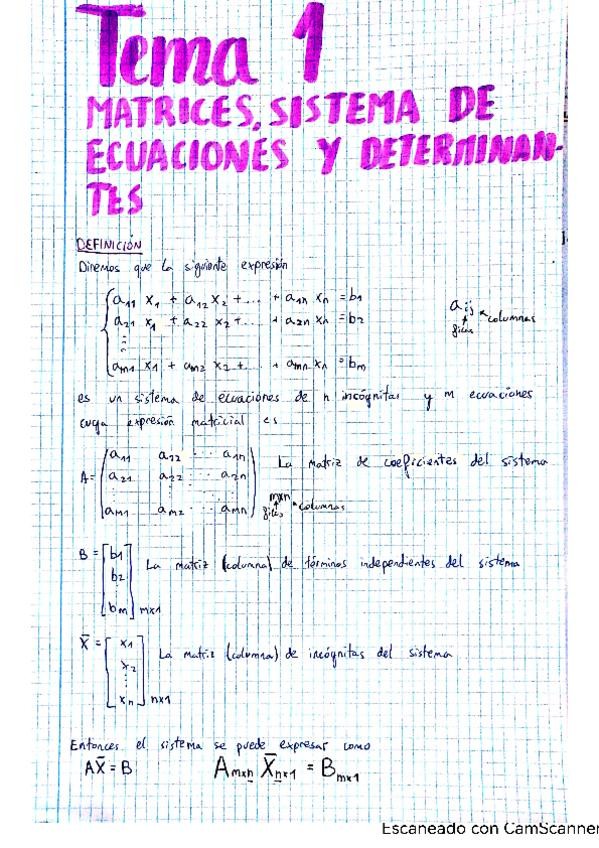 Tema 1
MATRICES, SISTEMA DE
ECUACIONES Y DETERMINAN-
TES
DEFINICIÓN
Diremos que la siguiente expresión
a11 x1 + a12 x2 + ... + a1n xn = b1
a21 x1 + a22 x2 + ... + a2n xn = b2
⋮
am1 x1 + am2 x2 + ... + amn xn = bm
aij
filas columnas
es un sistema de ecuaciones de n incógnitas y m ecuaciones
cuya expresión matricial es
A = ( a11 a12 ... a1n
a21 a22 ... a2n
am1 am2 ... amn ) mxn
filas columnas
La matriz de coeficientes del sistema
B = [ b1
b2
⋮
bm ] mx1
La matriz (columna) de términos independientes del sistema
X̄ = [ x1
x2
⋮
xn ] nx1
La matriz (columna) de incógnitas del sistema
Entonces el sistema se puede expresar como
AX̄ = B Amxn X̄nx1 = Bmx1
Escaneado con CamScanner